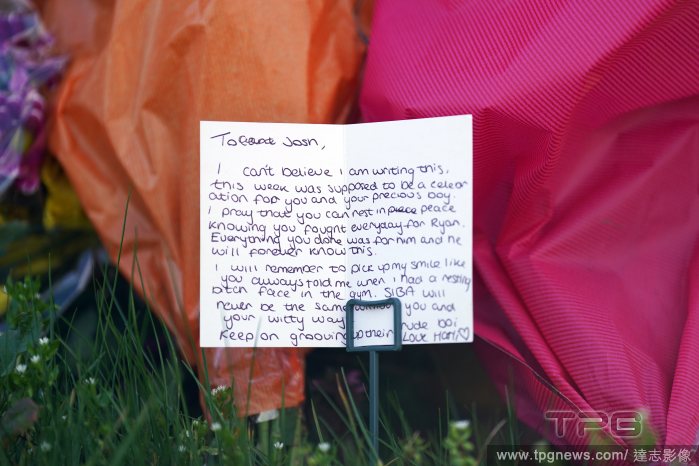 To Josh,
I can't believe I am writing this,
this week was supposed to be a celebr
ation for you and your precious boy.
I pray that you can rest in peace
knowing you fought everyday for Ryan.
Everything you done was for him and he
will forever know this.
I will remember to pick up my smile like
you always told me when I had a resting
bitch face in the gym. SIBA will
never be the same without you and
your witty way
Keep on grooving up there rude boi
Love Hari♡
TPG
www.tpgnews.com/達志影像